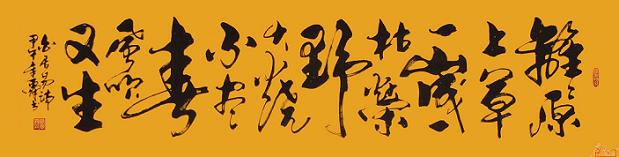 離々原
上草
一歲一
枯榮
野
火燒
不盡
春
風吹
又生
白居易詩
甲午年書